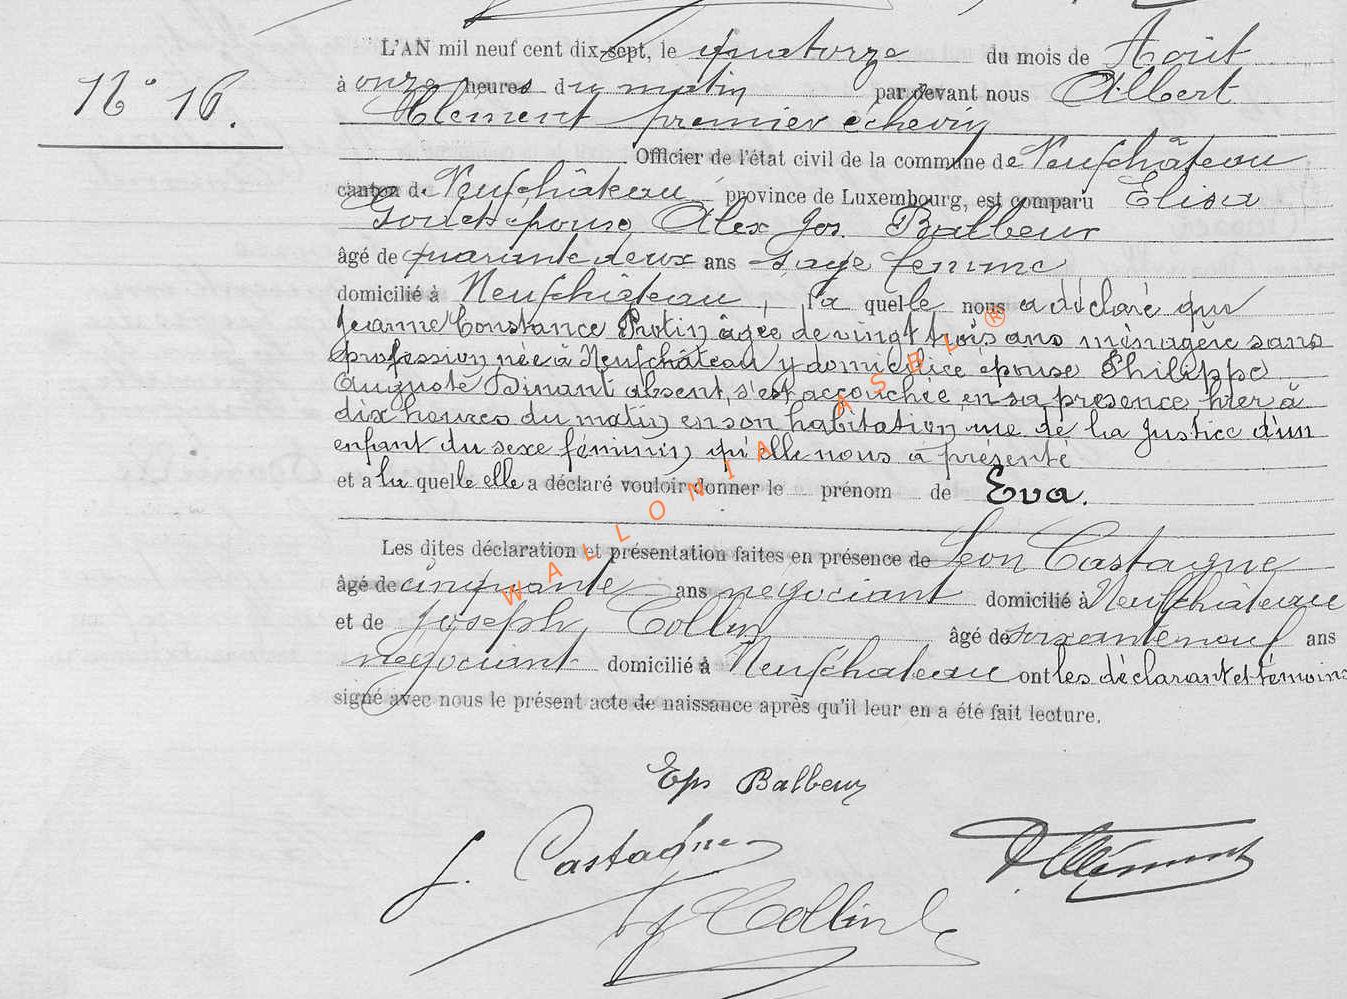 N° 16.
L'AN mil neuf cent dix-sept, le quatorze du mois de Août
à onze heures du matin par devant nous Albert
Clément premier échevin
Officier de l'état civil de la commune de Neufchâteau
canton de Neufchâteau province de Luxembourg, est comparu Elisa
épouse Alex Jos. Balbeur
âgé de quarante deux ans sage femme
domicilié à Neufchâteau, la quelle nous a déclaré que
Jeanne Constance Protin âgée de vingt trois ans ménagère sans
profession née à Neufchâteau y domiciliée épouse Philippe
Auguste Dinant absent, s'est accouchée en sa présence hier à
dix heures du matin en son habitation rue de la Justice d'un
enfant du sexe féminin, qu'elle nous a présenté
et a la quelle elle a déclaré vouloir donner le prénom de Eva.
Les dites déclaration et présentation faites en présence de Léon Castagne
âgé de cinquante ans négociant domicilié à Neufchâteau
et de Joseph Collin âgé de soixante neuf ans
négociant domicilié à Neufchateau ont les déclarant et témoins
signé avec nous le présent acte de naissance après qu'il leur en a été fait lecture.
Eps Balbeur
Castagne
Collin
Clément
WALLONIA ASBL ®